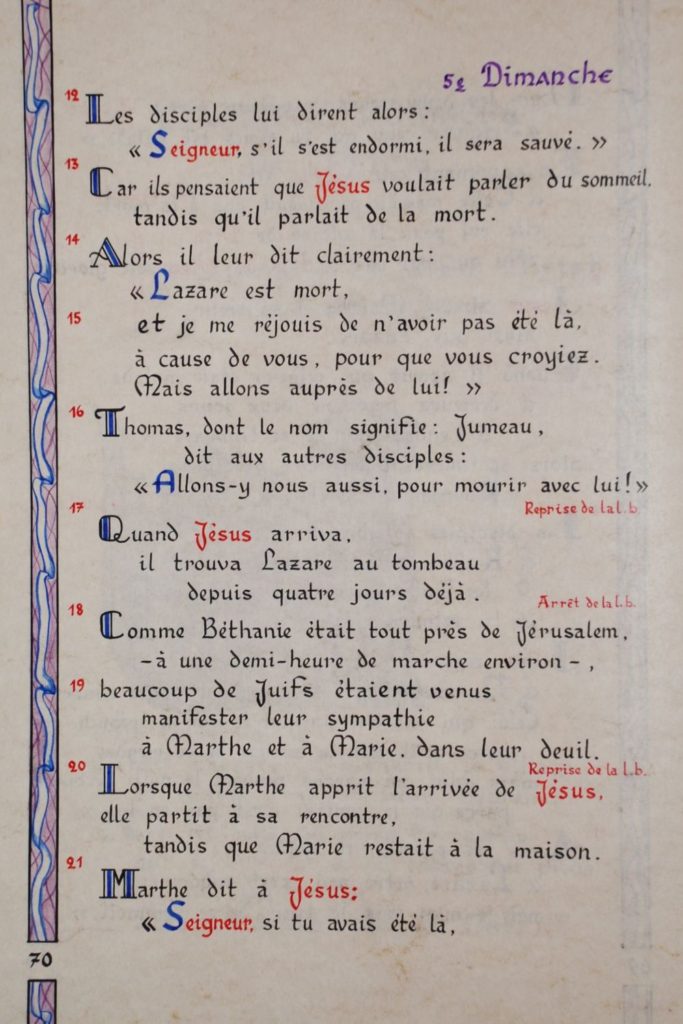 5e Dimanche
12 Les disciples lui dirent alors :
« Seigneur, s'il s'est endormi, il sera sauvé. »
13 Car ils pensaient que Jésus voulait parler du sommeil,
tandis qu'il parlait de la mort.
14 Alors il leur dit clairement :
« Lazare est mort,
15 et je me réjouis de n'avoir pas été là,
à cause de vous, pour que vous croyiez.
Mais allons auprès de lui! »
16 Thomas, dont le nom signifie : Jumeau,
dit aux autres disciples :
« Allons-y nous aussi, pour mourir avec lui! »
Reprise de la l. b.
17 Quand Jésus arriva,
il trouva Lazare au tombeau
depuis quatre jours déjà.
Arrêt de la l. b.
18 Comme Béthanie était tout près de Jérusalem,
- à une demi-heure de marche environ -,
19 beaucoup de Juifs étaient venus
manifester leur sympathie
à Marthe et à Marie, dans leur deuil.
Reprise de la l. b.
20 Lorsque Marthe apprit l'arrivée de Jésus,
elle partit à sa rencontre,
tandis que Marie restait à la maison.
21 Marthe dit à Jésus:
« Seigneur, si tu avais été là,
70